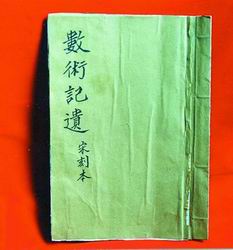 數術記遺
宋刻本